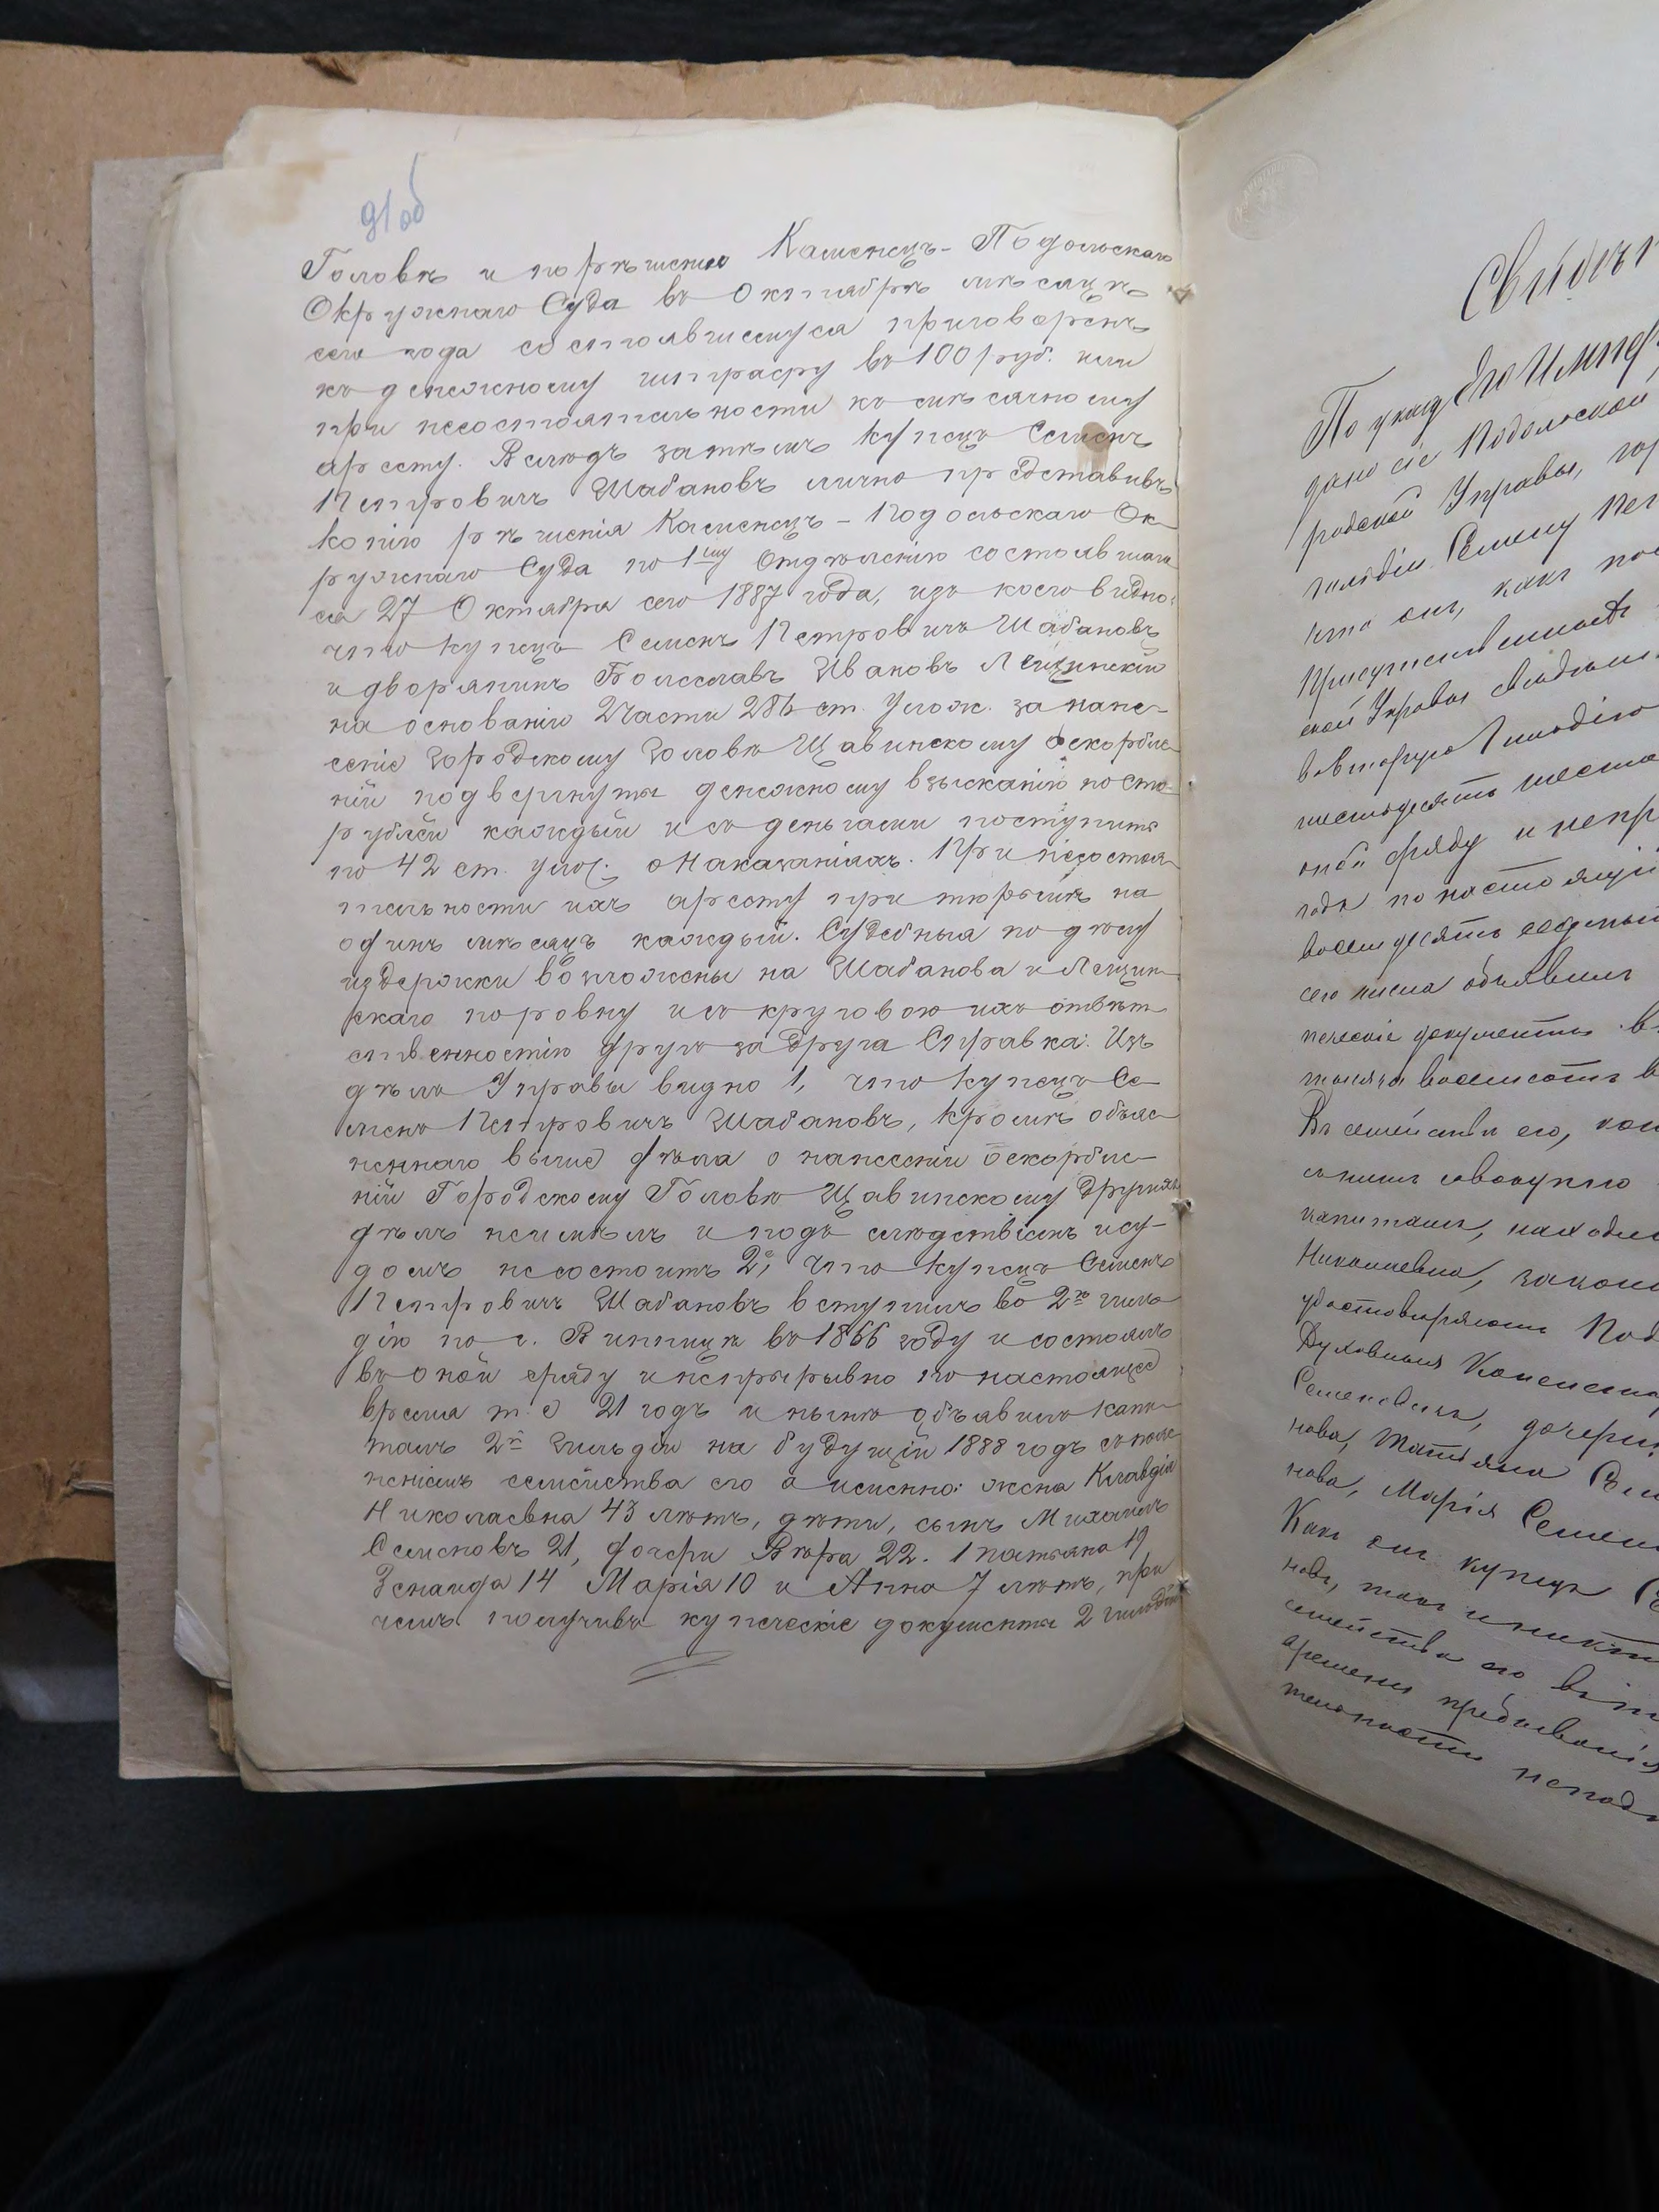 91об
Головѣ и по рѣшенію Каменецъ-Подольскаго
Окружнаго Суда въ Октябрѣ мѣсяцѣ
сего года состоявшемуся приговоренъ
къ денежному штрафу въ 100 руб. или
при несостоятельности къ мѣсячному
аресту. Вслѣдъ затѣмъ купецъ Семенъ
Петровичъ Шабановъ лично представивъ
копію рѣшенія Каменецъ-Подольскаго Ок-
ружнаго Суда по 1му Отдѣленію состоявшаго
ся 27 Октября сего 1887 года, изъ коего видно:
что купецъ Семенъ Петровичъ Шабановъ
и дворянинъ Болеславъ Ивановъ Лещинскій
на основаніи 2 части 286 ст. Улож. за нане-
сеніе городскому головѣ Щавинскому оскорбле-
ній подвергнуты денежному взысканію по сто
рублей каждый и съ деньгами поступить
по 42 ст. улож. о Наказаніяхъ. При несостоя-
тельности ихъ аресту при тюрьмѣ на
одинъ мѣсяцъ каждый. Судебныя по дѣлу
издержки возложены на Шабанова и Лещин-
скаго поровну и съ круговою ихъ отвѣт
ственностію другъ за друга Справка: Изъ
дѣлъ Управы видно 1, что купецъ Се-
менъ Петровичъ Шабановъ, кромѣ объяс
неннаго выше дѣла о нанесеніи оскорбле-
ній Городскому Головѣ Щавинскому другихъ
дѣлъ неимѣлъ и подъ слѣдствіемъ и су-
домъ несостоитъ 2, что купецъ Семенъ
Петровичъ Шабановъ вступилъ во 2ю гиль
дію по г. Винницѣ въ 1866 году и состоялъ
въ оной сряду и непрерывно по настоящее
время т. е 21 годъ и нынѣ объявилъ капи-
талъ 2й Гильдіи на будущій 1888 годъ съ поме
неніемъ семейства его а именно: жена Клавдія
Николаевна 43 лѣтъ, дѣти, сынъ Михаилъ
Семеновъ 21, дочери Вѣра 22. Татьяна 19
Зенаида 14 Марія 10 и Анна 7 лѣтъ, при
чемъ получивъ купеческіе документы 2 гильдіи
По указу Его Импер
дано сіе Подольской
родской Управы, гор
гильдіи Семену Пет
что онъ, какъ
Присутственныхъ
ской Управы
во вторую Гильдію
шестьдесятъ шесто
оной сряду и непр
года по настоящій
восемьдесятъ седьмый
сего числа объявилъ
печескіе документы въ
тысяча восемьсотъ в
Въ семействѣ его,
съ нимъ совокупно
капиталѣ, находи
Николаевна, закон
удостовѣренію Под
Духовныя Консисто
Семеновичъ, дочери:
нова, Татіяна Сем
нова, Марія Семен
Какъ онъ купецъ Се
новъ, такъ и никто
семейства его въ
времени пребыванія
тельности непод